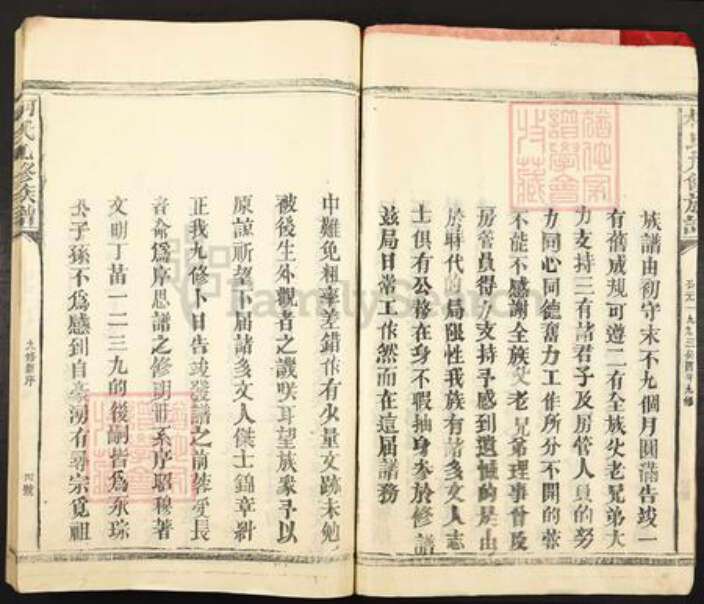 族譜由初守末不九個月圓滿告竣一
有舊成規可遵二有全族父老兄弟大
力支持三有諸君子及房管人員的努
力同心同德奮力工作所分不開的
不能不感謝全族父老兄弟理事會及
房管員得力支持予感到遺憾的是由
於時代的局限性我族有諸多文人志
士俱有公務在身不暇抽身參於修譜
茲局日常工作然而在這屆譜務
中難免粗率差錯作有少量文跡未勉
被後生外觀者之譏咲耳望族衆予以
原諒祈望下屆諸多文人傑士錦章糾
正我九修卜日告竣發譜之前蒙受長
者命爲序思譜之修明世系序昭穆著
文明丁苗一二三九的後嗣皆爲永琮
公子孫不爲感到自豪湧有尋宗覓祖
氏九修族譜
九修新序
四號
FamilySearch